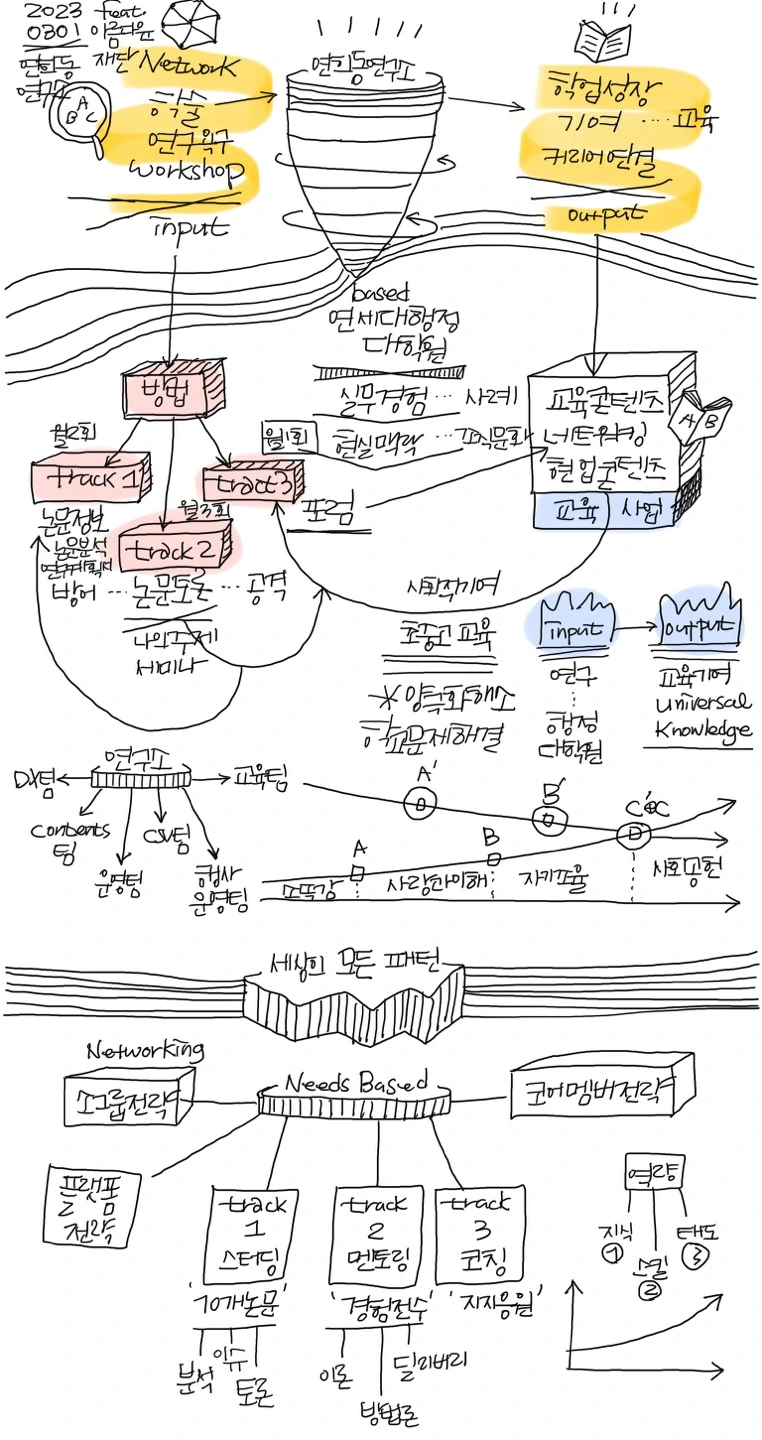 2023 feat.
0301 아름다운
재단
연희동
연구소
A
B C
Network
학술
연구욕구
workshop
input
연희동연구소
학업성장
기여 ···· 교육
커리어연결
output
based
연세대행정
대학원
실무경험 ··· 사례
월1회
현실맥락 ··· 조식문화
포럼
방법
월2회
track 1
논문정보
논문분석
연구계획서
월3회
track 2
방어 ··· 논문토론 ··· 공격
나의주제
세미나
track3
교육콘텐츠
네트워킹
현업콘텐츠
교육 사업
A B
사회적기여
초중고 교육
* 양극화해소
학교문제해결
input
연구
행정
대학원
output
교육기여
universal
Knowledge
연구소
DX팀
교육팀
contents
팀
운영팀
CSV팀
행사
운영팀
A'
B'
C'⊕C
A
B
사랑과이해
자기조율
사회공헌
세상의 모든 패턴
Networking
소그룹전략
Needs Based
코어멤버전략
플랫폼
전략
track
1
스터딩
'10개논문'
분석
이슈
토론
track
2
멘토링
'경험전수'
이론
방법론
딜리버리
track
3
코칭
'지지응원'
역량
지식
①
스킬
②
태도
③